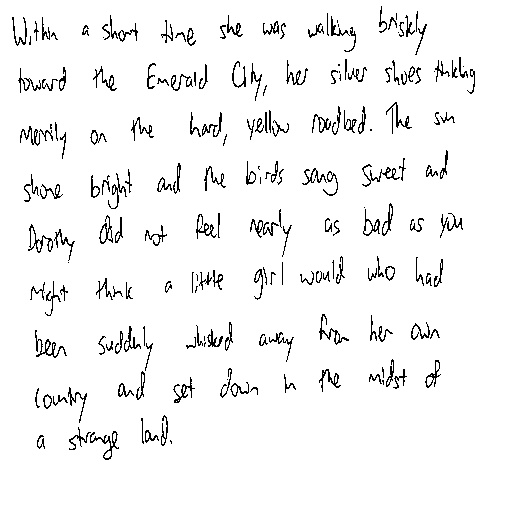 Within a short time she was walking briskly
toward the Emerald City, her silver shoes tinkling
merrily on the hard, yellow roadbed. The sun
shone bright and the birds sang sweet and
Dorothy did not feel nearly as bad as you
might think a little girl would who had
been suddenly whisked away from her own
country and set down in the midst of
a strange land.